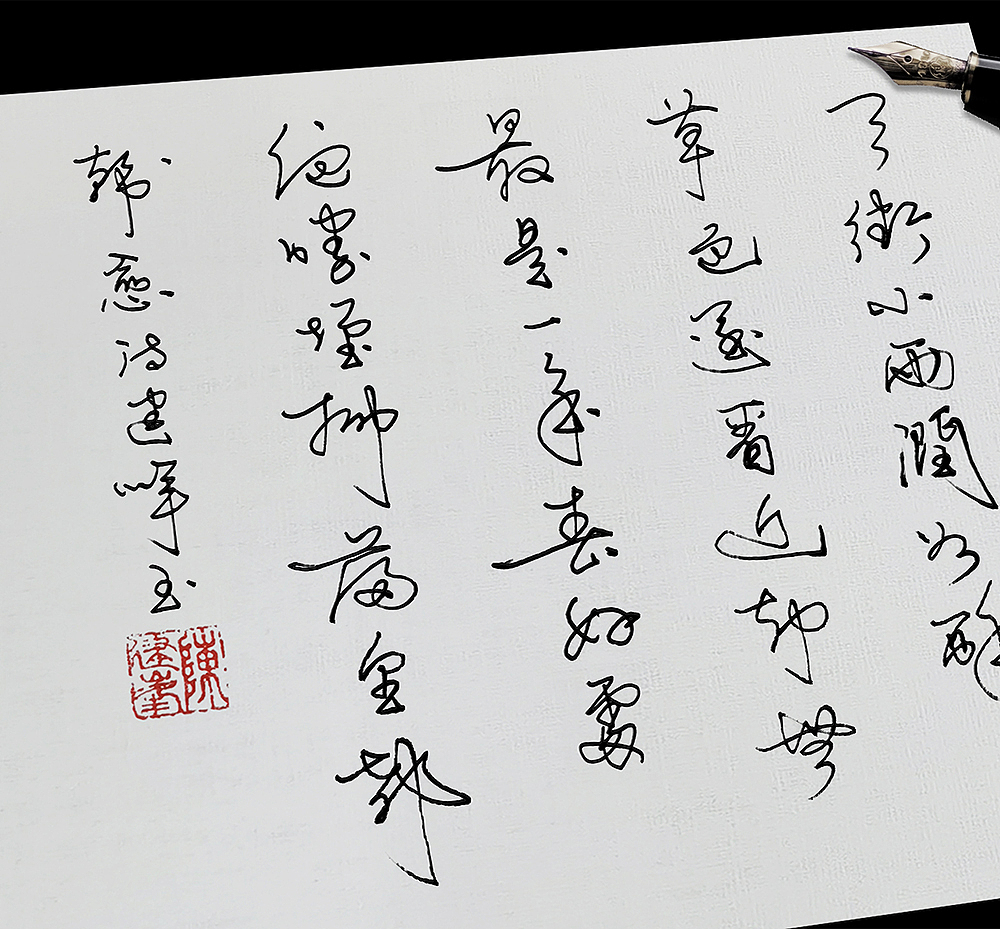 天街小雨潤如酥
草色遥看近却無
最是一年春好處
絕勝煙柳滿皇都
韓愈诗建峰
陳建峯